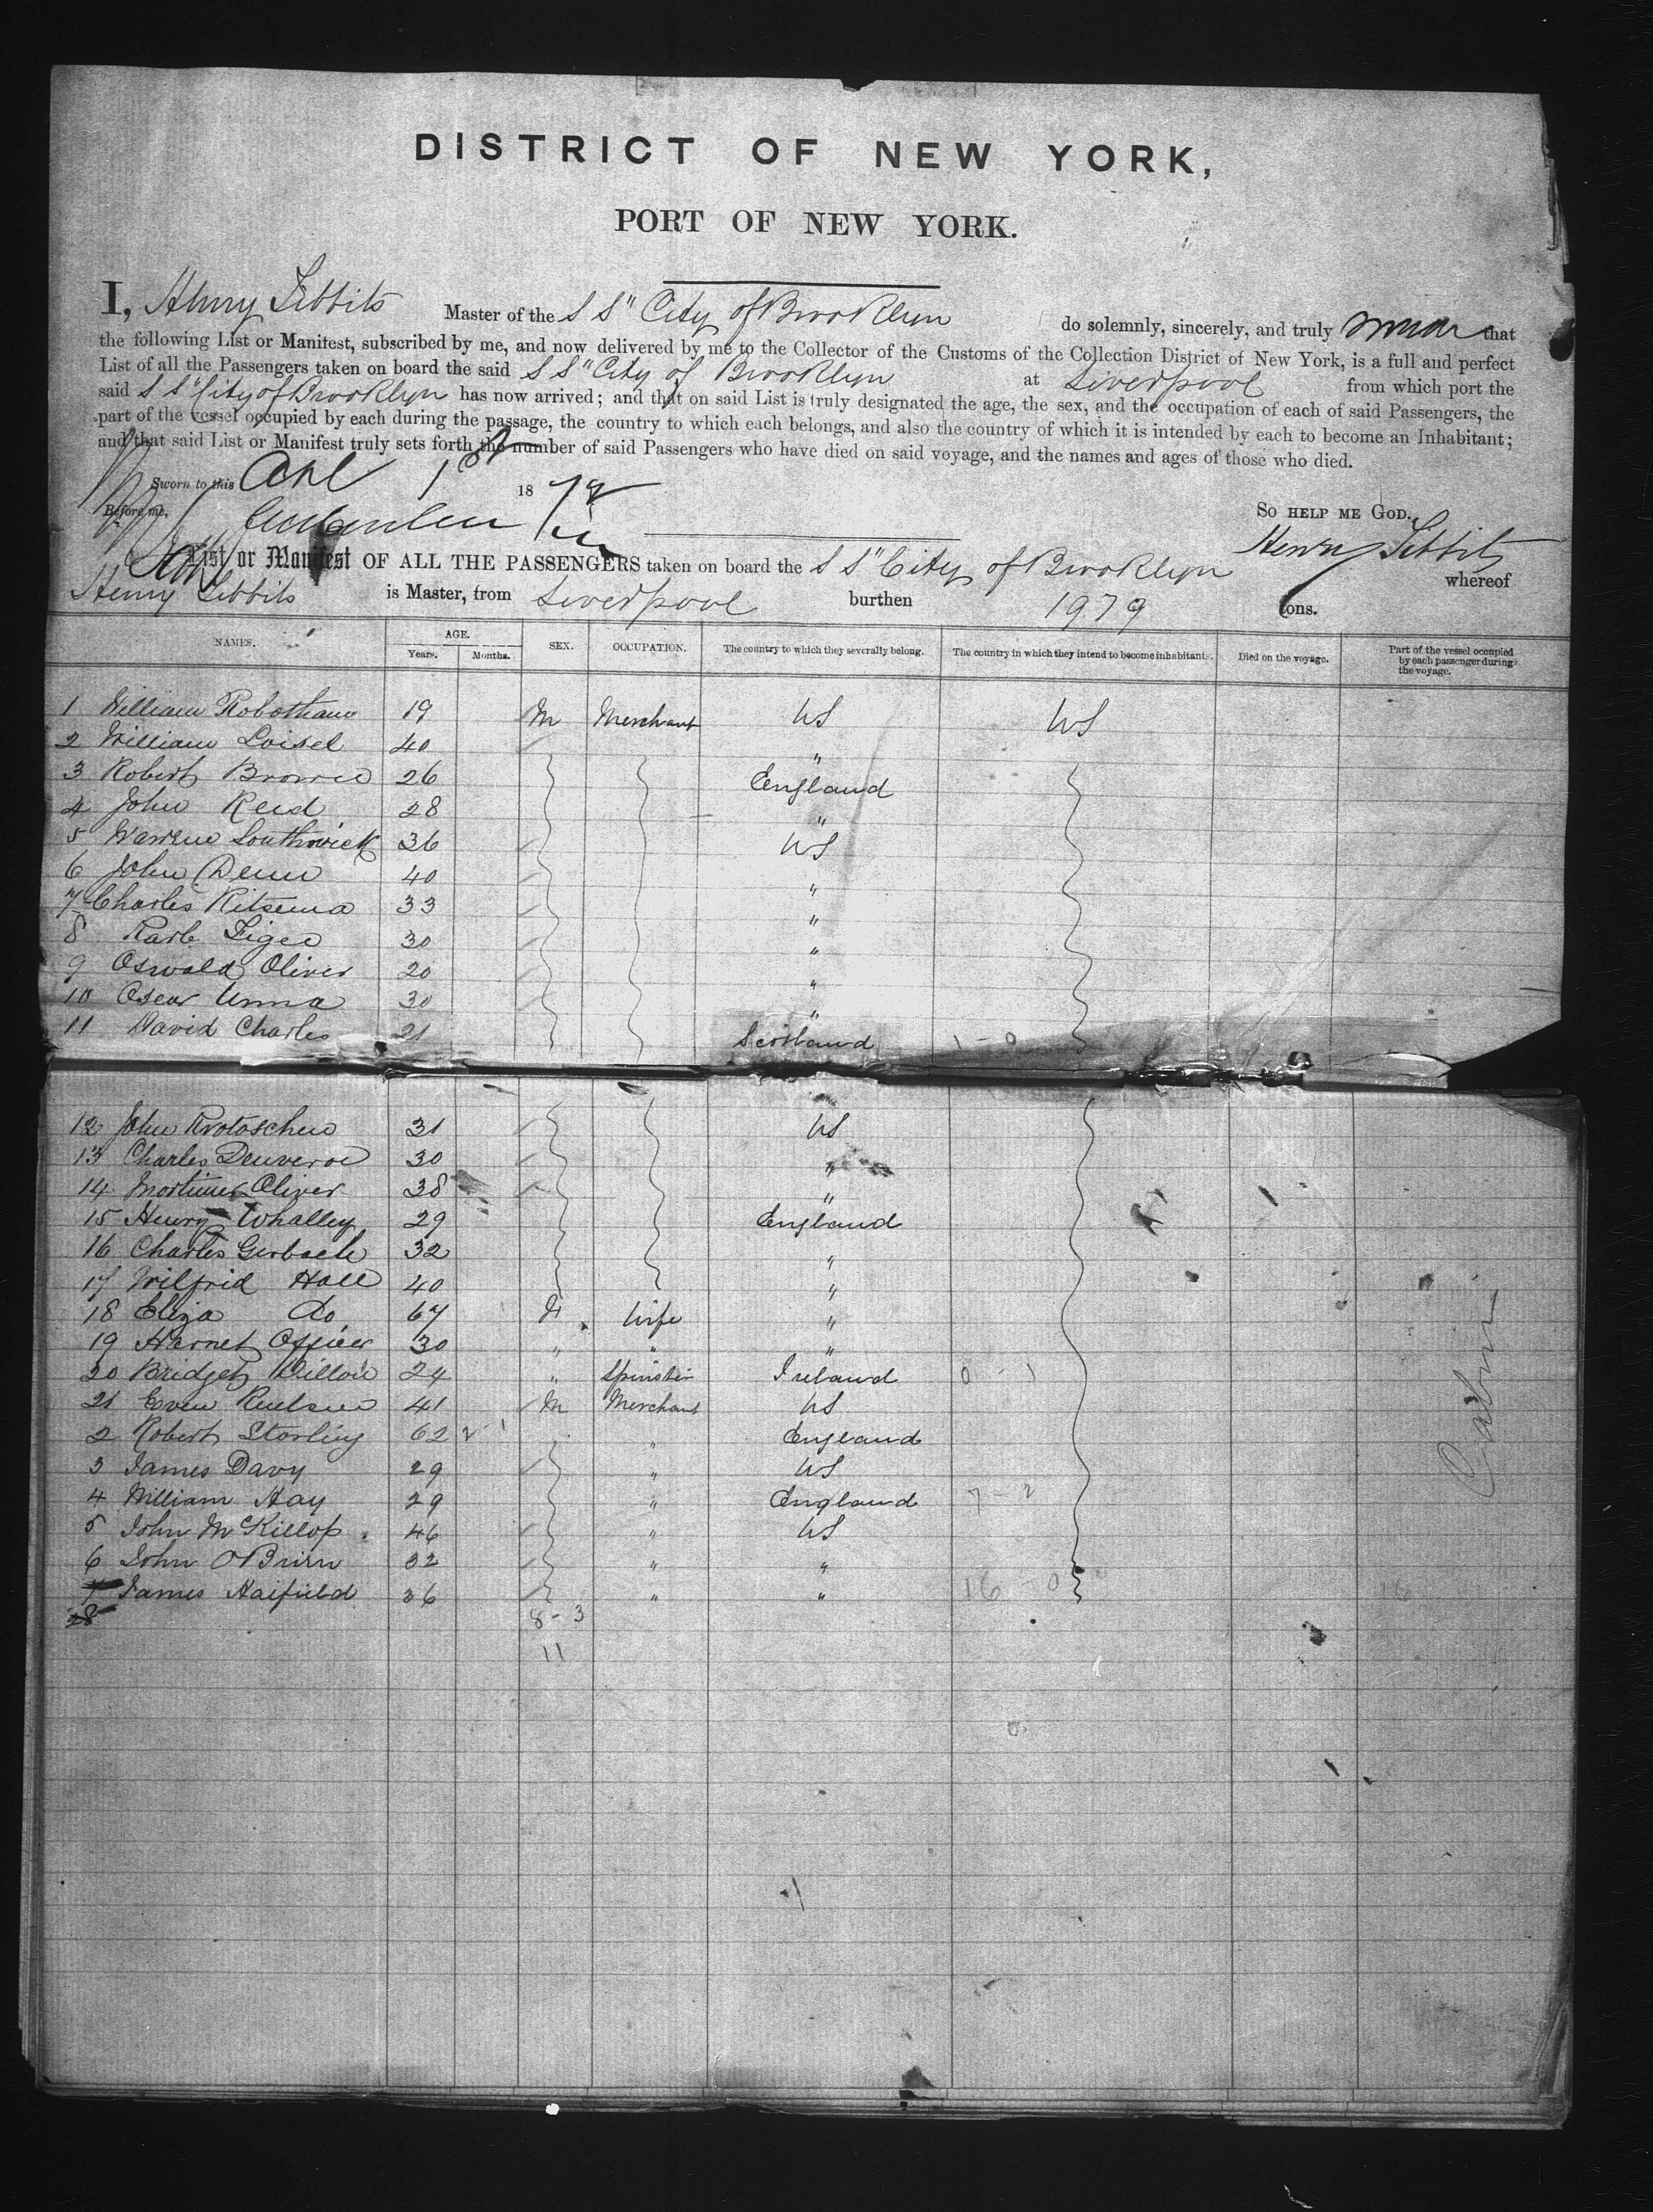 DISTRICT OF NEW YORK,
PORT OF NEW YORK.
I, Henry Tibbits Master of the S S "City of Brooklyn do solemnly, sincerely, and truly swear that
the following List or Manifest, subscribed by me, and now delivered by me to the Collector of the Customs of the Collection District of New York, is a full and perfect
List of all the Passengers taken on board the said S S "City of Brooklyn at Liverpool from which port the
said S S "City of Brooklyn has now arrived; and that on said List is truly designated the age, the sex, and the occupation of each of said Passengers, the
part of the vessel occupied by each during the passage, the country to which each belongs, and also the country of which it is intended by each to become an Inhabitant;
and that said List or Manifest truly sets forth the number of said Passengers who have died on said voyage, and the names and ages of those who died.
Sworn to this 1st 1878
Before me, SO HELP ME GOD.
Henry Tibbits
List or Manifest OF ALL THE PASSENGERS taken on board the S S "City of Brooklyn whereof
Henry Tibbits is Master, from Liverpool burthen 1979 tons.
NAMES. AGE. Years. Months. SEX. OCCUPATION. The country to which they severally belong. The country in which they intend to become inhabitants. Died on the voyage. Part of the vessel occupied by each passenger during the voyage.
1 William Robotham 19 M Merchant US US
2 William Loisel 40 "
3 Robert Browne 26 England
4 John Reid 28 "
5 Warren Southwick 36 US
6 John 40 "
7 Charles Ritsema 33 "
8 Karl 30 "
9 Oswald Oliver 20 "
10 Oscar Unna 30 "
11 David Charles 21 Scotland 1 - 0
12 John 31 US
13 Charles 30 "
14 Mortimer Oliver 38 "
15 Henry Whalley 29 England
16 Charles 32 "
17 Wilfrid Hall 40 "
18 Eliza Do 67 F Wife "
19 Harriet Officer 30 " " "
20 Bridget Dillon 24 " Spinster Ireland 0 - 1
21 Even 41 M Merchant US
2 Robert Starling 62 " England
3 James Davy 29 " US
4 William Hay 29 " England 7 - 2
5 John McKillop 46 " US
6 John O'Brien 32 " "
7 James Haifield 36 " " 16 0 16
28 8 - 3
11
Cabin